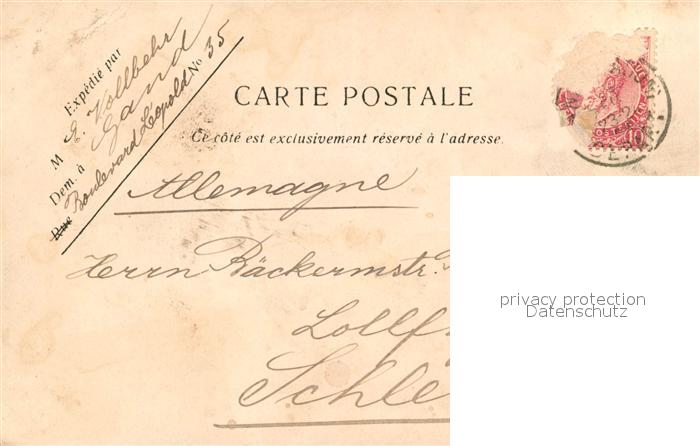 Expédié par
M E. Vollbehr
Dem. à Gand
Rue Boulevard Léopold No 35
CARTE POSTALE
Ce côté est exclusivement réservé à l'adresse.
Allemagne
Herrn Bäckermstr.
Lollf
Schle
privacy protection
Datenschutz